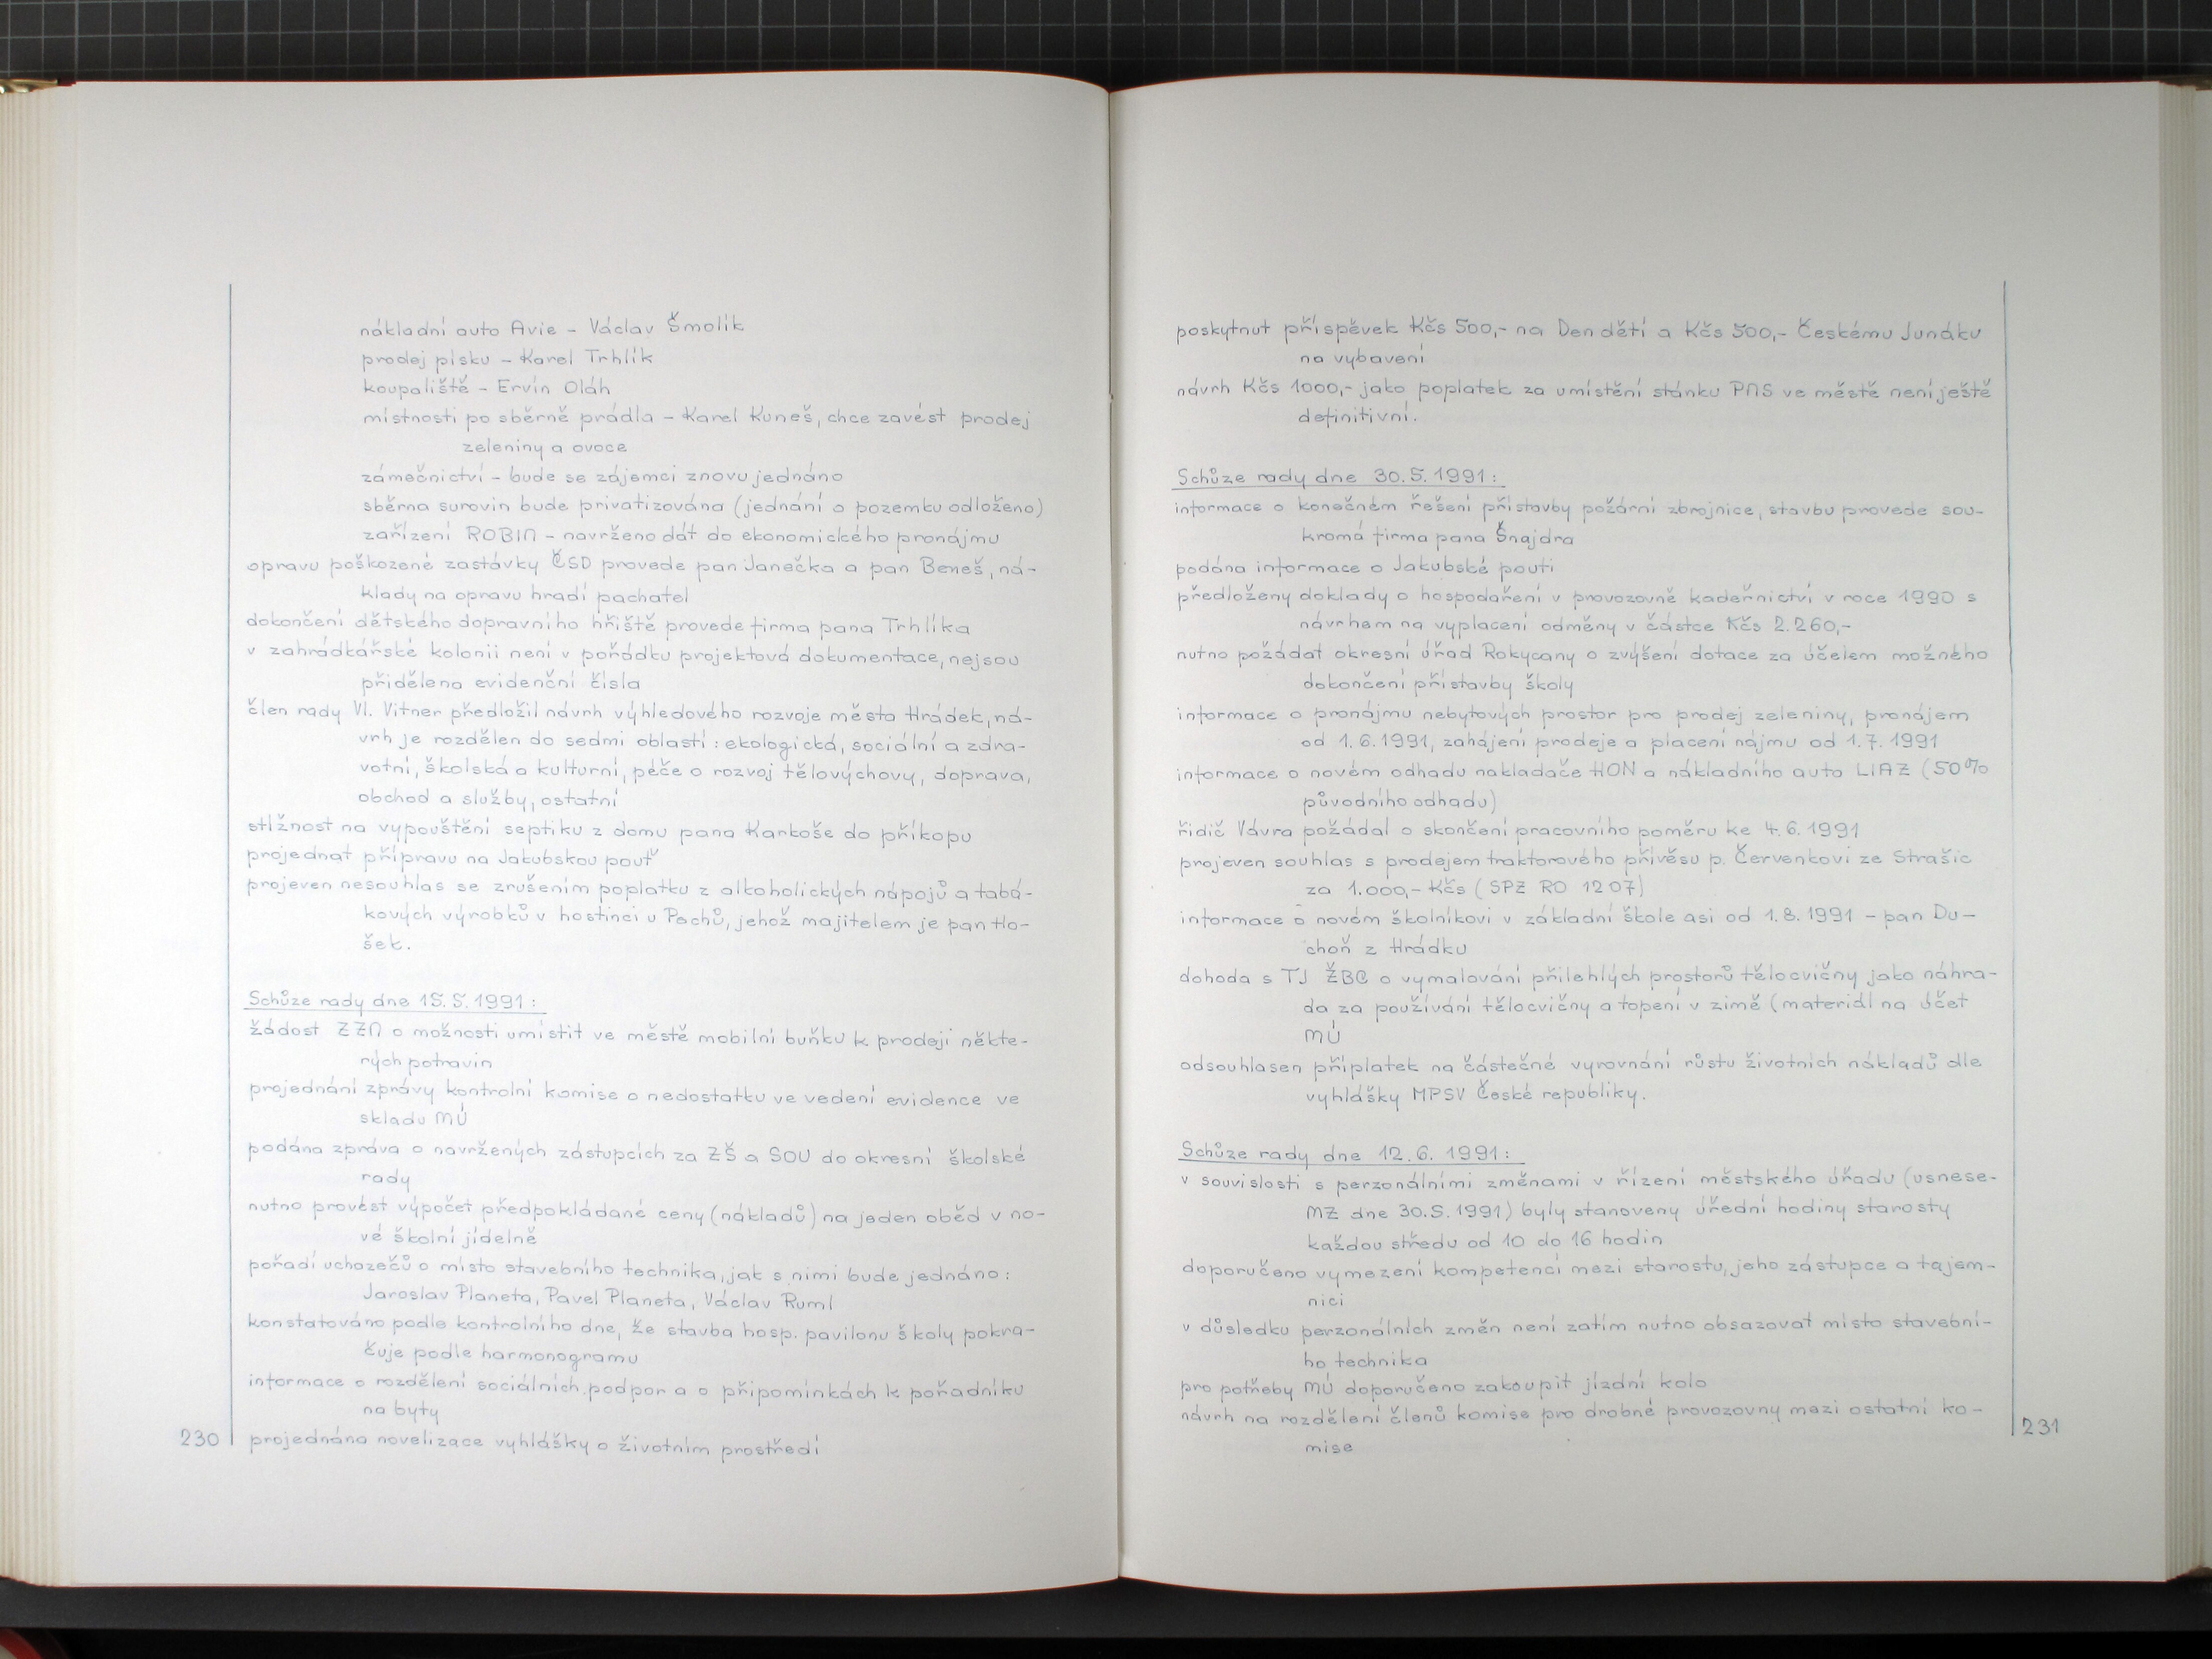 nákladní auto Avie - Václav Šmolík
prodej písku - Karel Trhlík
koupaliště - Ervín Oláh
místnosti po sběrně prádla - Karel Kuneš, chce zavést prodej
zeleniny a ovoce
zámečnictví - bude se zájemci znovu jednáno
sběrna surovin bude privatizována (jednání o pozemku odloženo)
zařízení ROBIN - navrženo dát do ekonomického pronájmu
opravu poškozené zastávky ČSD provede pan Janečka a pan Beneš, ná-
klady na opravu hradí pachatel
dokončení dětského dopravního hřiště provede firma pana Trhlíka
v zahrádkářské kolonii není v pořádku projektová dokumentace, nejsou
přidělena evidenční čísla
člen rady Vl. Vitner předložil návrh výhledového rozvoje města Hrádek, ná-
vrh je rozdělen do sedmi oblastí: ekologická, sociální a zdra-
votní, školská a kulturní, péče o rozvoj tělovýchovy, doprava,
obchod a služby, ostatní
stížnost na vypouštění septiku z domu pana Karkoše do příkopu
projednat přípravu na Jakubskou pouť
projeven nesouhlas se zrušením poplatku z alkoholických nápojů a tabá-
kových výrobků v hostinci u Pachů, jehož majitelem je pan Ho-
šek.
Schůze rady dne 15.5.1991:
žádost ZZN o možnosti umístit ve městě mobilní buňku k prodeji někte-
rých potravin
projednání zprávy kontrolní komise o nedostatku ve vedení evidence ve
skladu MÚ
podána zpráva o navržených zástupcích za ZŠ a SOU do okresní školské
rady
nutno provést výpočet předpokládané ceny (nákladů) na jeden oběd v no-
vé školní jídelně
pořadí uchazečů o místo stavebního technika, jak s nimi bude jednáno:
Jaroslav Planeta, Pavel Planeta, Václav Ruml
konstatováno podle kontrolního dne, že stavba hosp. pavilonu školy pokra-
čuje podle harmonogramu
informace o rozdělení sociálních podpor a o připomínkách k pořadníku
na byty
230 projednána novelizace vyhlášky o životním prostředí
poskytnut příspěvek Kčs 500,- na Den dětí a Kčs 500,- Českému Junáku
na vybavení
návrh Kčs 1000,- jako poplatek za umístění stánku PNS ve městě není ještě
definitivní.
Schůze rady dne 30.5.1991:
informace o konečném řešení přístavby požární zbrojnice, stavbu provede sou-
kromá firma pana Šnajdra
podána informace o Jakubské pouti
předloženy doklady o hospodaření v provozovně kadeřnictví v roce 1990 s
návrhem na vyplacení odměny v částce Kčs 2.260,-
nutno požádat okresní úřad Rokycany o zvýšení dotace za účelem možného
dokončení přístavby školy
informace o pronájmu nebytových prostor pro prodej zeleniny, pronájem
od 1.6.1991, zahájení prodeje a placení nájmu od 1.7.1991
informace o novém odhadu nakladače HON a nákladního auta LIAZ (50%
původního odhadu)
řidič Vávra požádal o skončení pracovního poměru ke 4.6.1991
projeven souhlas s prodejem traktorového přívěsu p. Červenkovi ze Strašic
za 1.000,- Kčs (SPZ RO 1207)
informace o novém školníkovi v základní škole asi od 1.8.1991 - pan Du-
choň z Hrádku
dohoda s TJ ŽBC o vymalování přilehlých prostorů tělocvičny jako náhra-
da za používání tělocvičny a topení v zimě (materiál na účet
MÚ
odsouhlasen příplatek na částečné vyrovnání růstu životních nákladů dle
vyhlášky MPSV České republiky.
Schůze rady dne 12.6.1991:
v souvislosti s perzonálními změnami v řízení městského úřadu (usnese-
MZ dne 30.5.1991) byly stanoveny úřední hodiny starosty
každou středu od 10 do 16 hodin
doporučeno vymezení kompetencí mezi starostu, jeho zástupce a tajem-
nici
v důsledku perzonálních změn není zatím nutno obsazovat místo stavební-
ho technika
pro potřeby MÚ doporučeno zakoupit jízdní kolo
návrh na rozdělení členů komise pro drobné provozovny mezi ostatní ko-
mise
231